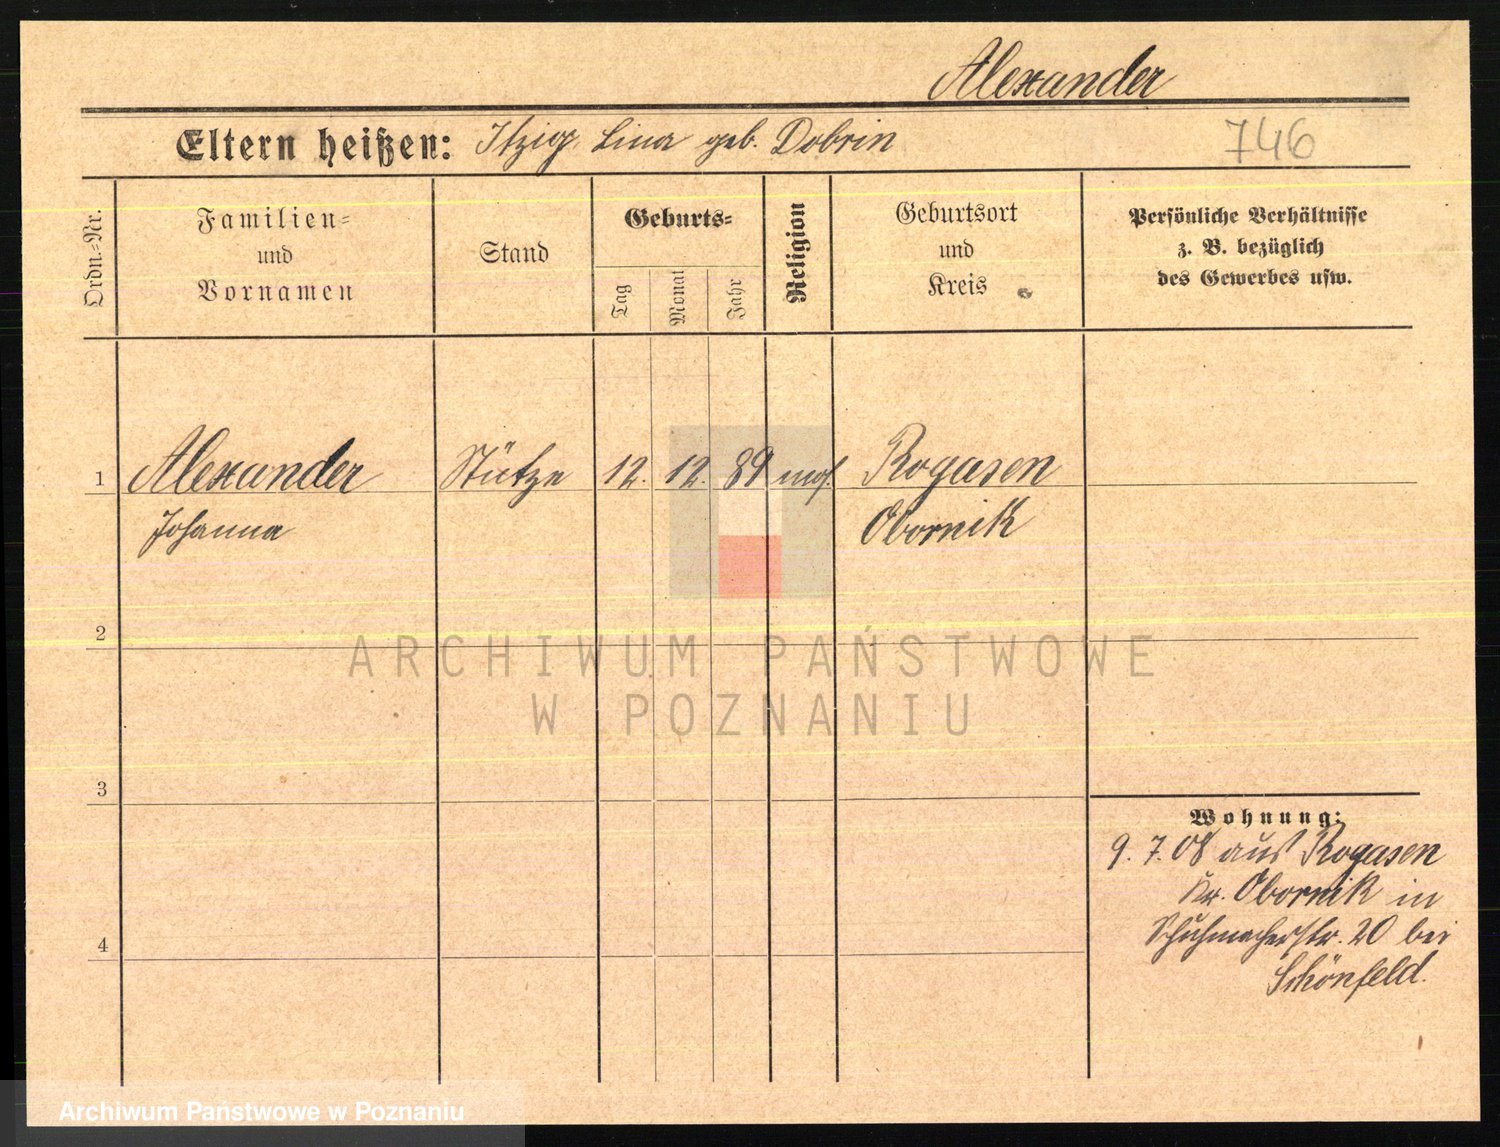 Alexander
Eltern heißen: Itzig, Lina geb. Dobrin
746
Ordn.=Nr.
Familien=
und
Vornamen
Stand
Geburts=
Tag
Monat
Jahr
Religion
Geburtsort
und
Kreis
Persönliche Verhältnisse
z. B. bezüglich
des Gewerbes usw.
1 Alexander Stütze 12. 12. 89 mos. Rogasen
Johanna Obornik
2
ARCHIWUM PAŃSTWOWE
W POZNANIU
3
Wohnung:
9. 7. 08 aus Rogasen
Kr. Obornik in
Schuhmacherstr. 20 bei
Schönfeld.
4
Archiwum Państwowe w Poznaniu